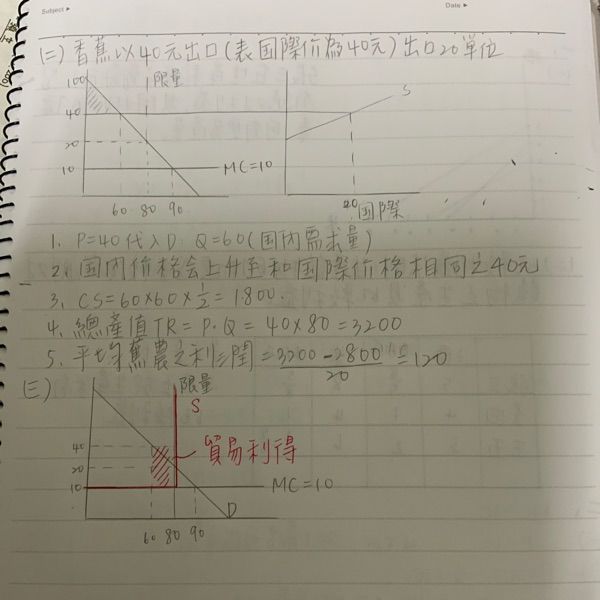 Subject ▸
Date ▸
(二) 香蕉以40元出口(表国際价為40元)出口20單位
100 限量
40 S
20
10 MC=10
60 80 90 40 国際
1. P=40代入D Q=60(国内需求量)
2. 国内价格会上升至和国際价格相同之40元
3. CS=60×60×1/2=1800.
4. 總產值TR=P·Q=40×80=3200
5. 平均蕉農之利潤=3200-2800/20=120
(三) 限量
S
40
20 貿易利得
10 MC=10
D
60 80 90